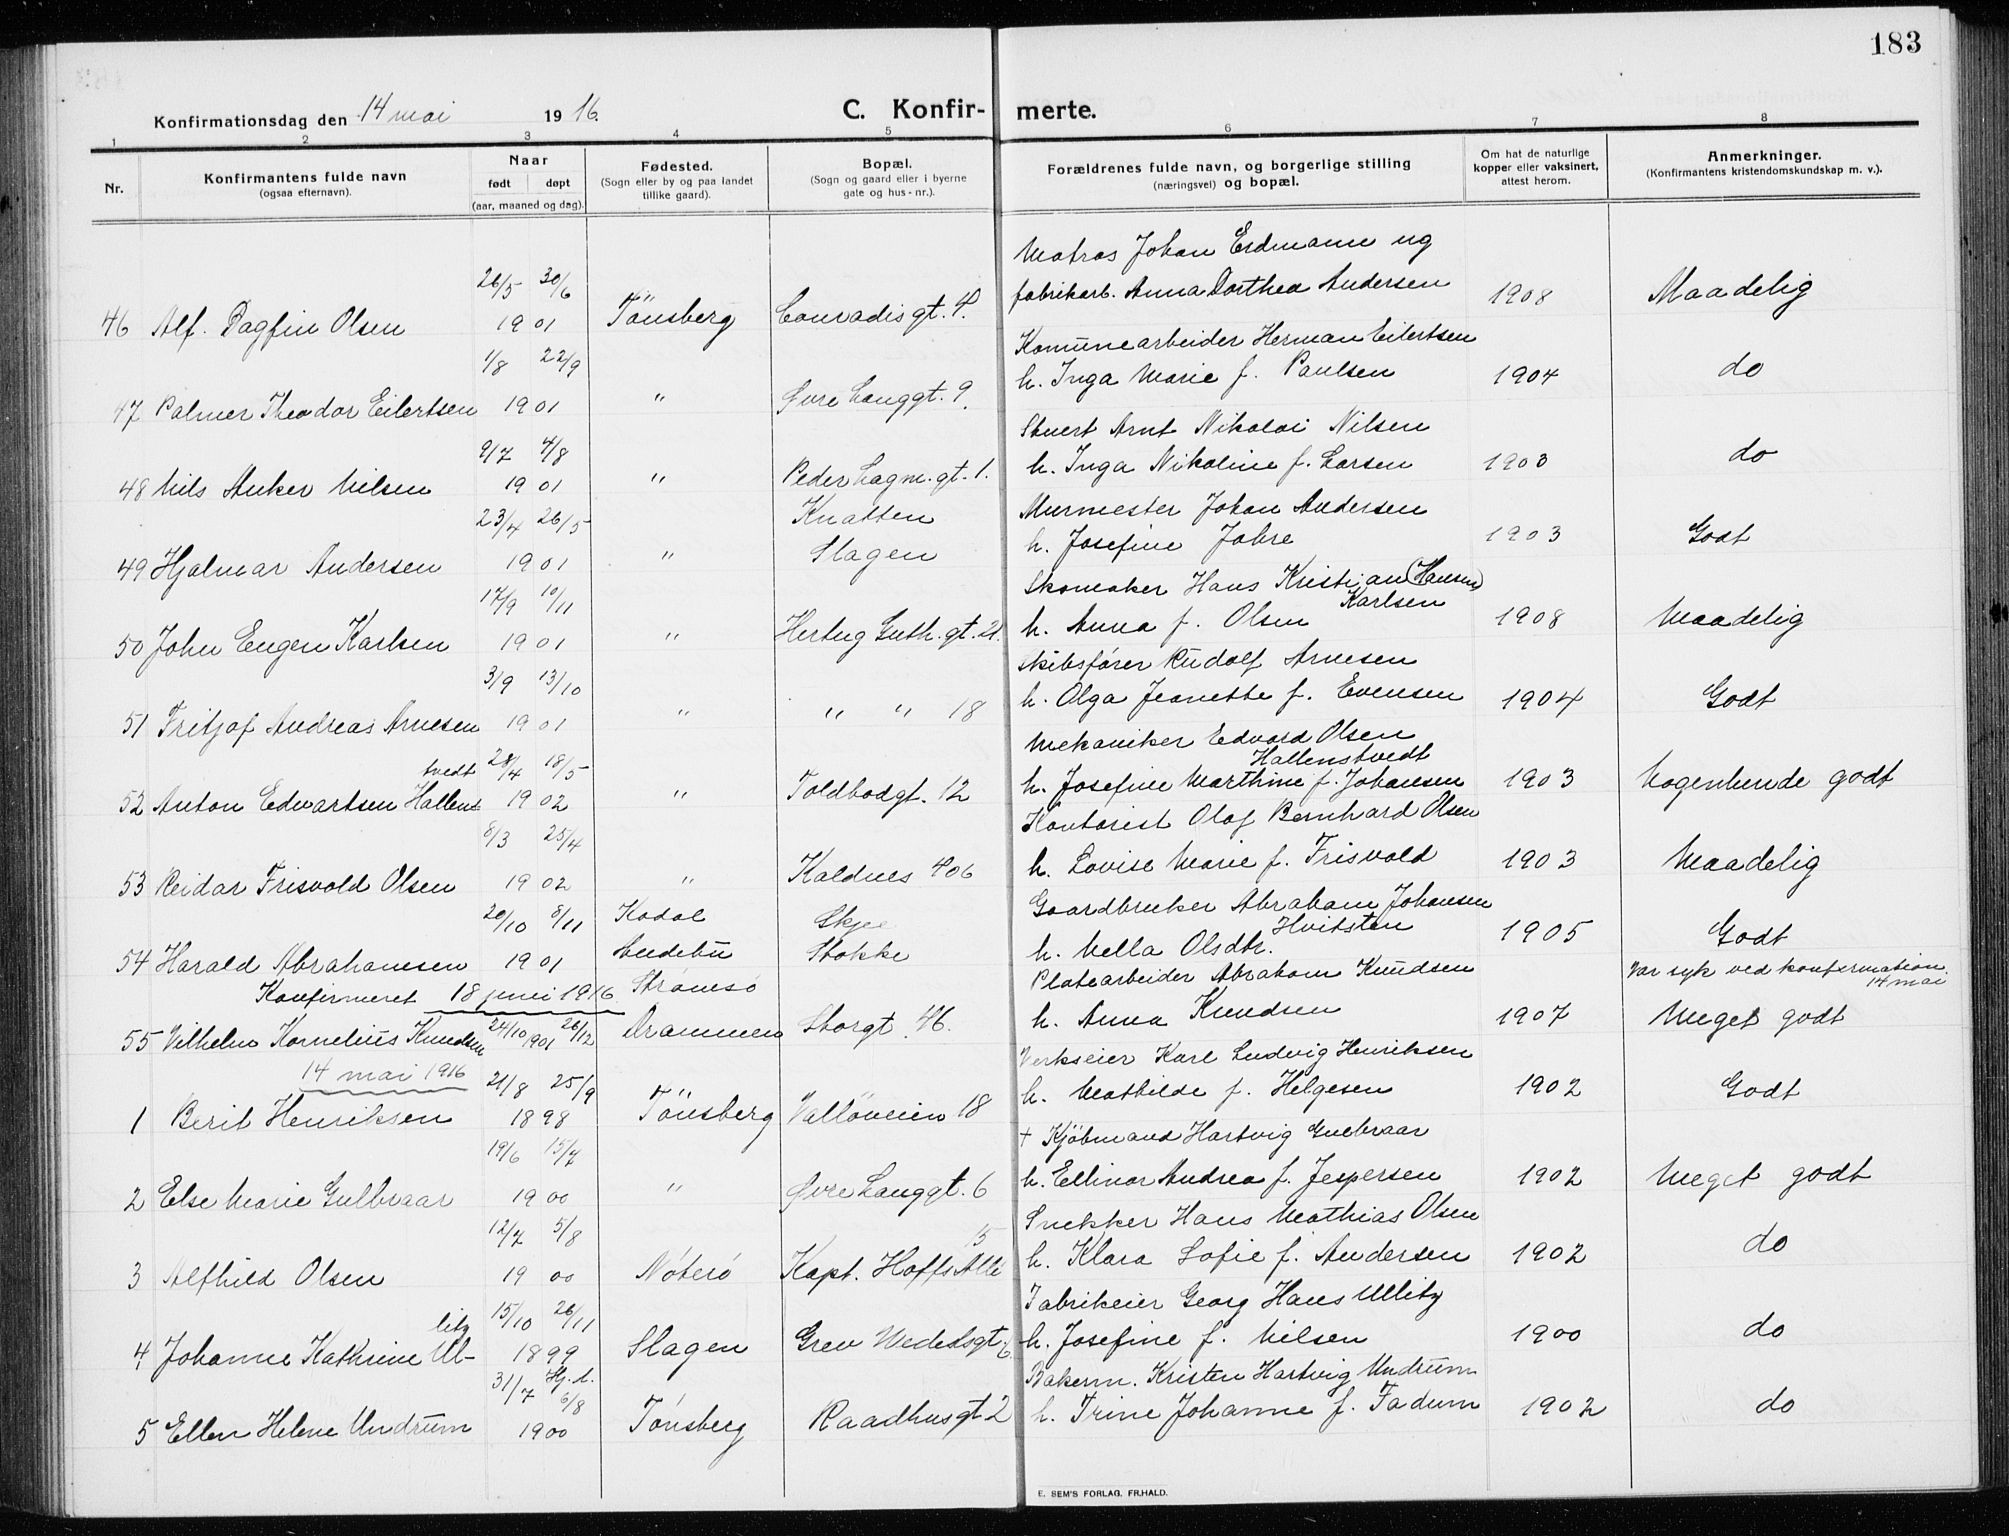 183
Konfirmationsdag den 14 mai 1916.
C. Konfir- merte.
1 2 3 4 5 6 7 8
Nr.
Konfirmantens fulde navn
(ogsaa efternavn).
Naar
født døpt
(aar, maaned og dag).
Fødested.
(Sogn eller by og paa landet
tillike gaard).
Bopæl.
(Sogn og gaard eller i byerne
gate og hus-nr.).
Forældrenes fulde navn, og borgerlige stilling
(næringsvei) og bopæl.
Om hat de naturlige
kopper eller vaksinert,
attest herom.
Anmerkninger.
(Konfirmantens kristendomskundskap m. v.).
Matros Johan Erdmann og
26/5 30/6 fabrikarb. Anna Dorthea Andersen
46 Alf. Dagfin Olsen 1901 Tönsberg Conradisgt. 4. 1908 Maadelig
Komunearbeider Herman Eilertsen
1/8 22/9 h. Inga Marie f. Paulsen 1904 do
47 Palmer Theodor Eilertsen 1901 " Øvre Langgt. 9.
Stuert Arnt Nikolai Nilsen
9/7 4/8 h. Inga Nikoline f. Larsen 1903 do
48 Nils Anker Nilsen 1901 " Peder Lagm. gt. 1.
23/4 26/5 Knatten Murmester Johan Andersen
49 Hjalmar Andersen 1901 " Slagen h. Josefine Jahre 1903 Godt
17/9 10/11 Skomaker Hans Kristian (Hansen)
Karlsen
50 John Eugen Karlsen 1901 " Hertug Guth. gt. 21. h. Anna f. Olsen 1908 Maadelig
3/9 13/10 Skibsfører Rudolf Arnesen
51 Fritjof Andreas Arnesen 1901 " " " 18 h. Olga Jeanette f. Evensen 1904 Godt
28/4 18/5 Mekaniker Edvard Olsen
tvedt Hallenstvedt
52 Anton Edvartsen Hallens 1902 " Toldbodgt. 12 h. Josefine Marthine f. Johansen 1903 Nogenlunde godt
8/3 25/4 Kontorist Olaf Bernhard Olsen
53 Reidar Frisvold Olsen 1902 " Kaldnes 406 h. Lovise Marie f. Frisvold 1903 Maadelig
20/10 8/11 Kodal Skjee Gaardbruker Abraham Johansen
Hvitsten
54 Harald Abrahamsen 1901 Andebu Stokke h. Nella Olsdtr. 1905 Godt
Konfirmeret 18 juni 1916 Strømsø Platearbeider Abraham Knudsen Var syk ved konfirmation
14 mai
55 Vilhelm Kornelius Knudsen 24/10 1901 26/12 Drammen Storgt. 46. h. Anna Knudsen 1907 Meget godt
14 mai 1916 21/8 25/9 Verkseier Karl Ludvig Henriksen
1 Berit Henriksen 1898 Tönsberg Vallöveien 18 h. Mathilde f. Helgesen 1902 Godt
19/6 15/7 + Kjöbmand Hartvig Gulbraar
2 Else Marie Gulbraar 1900 " Øvre Langgt. 6 h. Ellinor Andrea f. Jespersen 1902 Meget godt
12/7 5/8 15 Snekker Hans Mathias Olsen
3 Alfhild Olsen 1900 Nøterø Kapt. Hoffs Alle h. Klara Sofie f. Andersen 1902 do
litz 15/10 26/11 Fabrikeier Georg Hans Ullitz
4 Johanne Kathrine Ul- 1899 Slagen Grev Wedelsgt. 6. h. Josefine f. Nilsen 1900 do
31/7 Hj. d. 6/8 Bakerm. Kristen Hartvig Undrum
5 Ellen Helene Undrum 1900 Tønsberg Raadhusgt 2 h. Trine Johanne f. Fadum 1902 do
E. SEM'S FORLAG, FR.HALD.